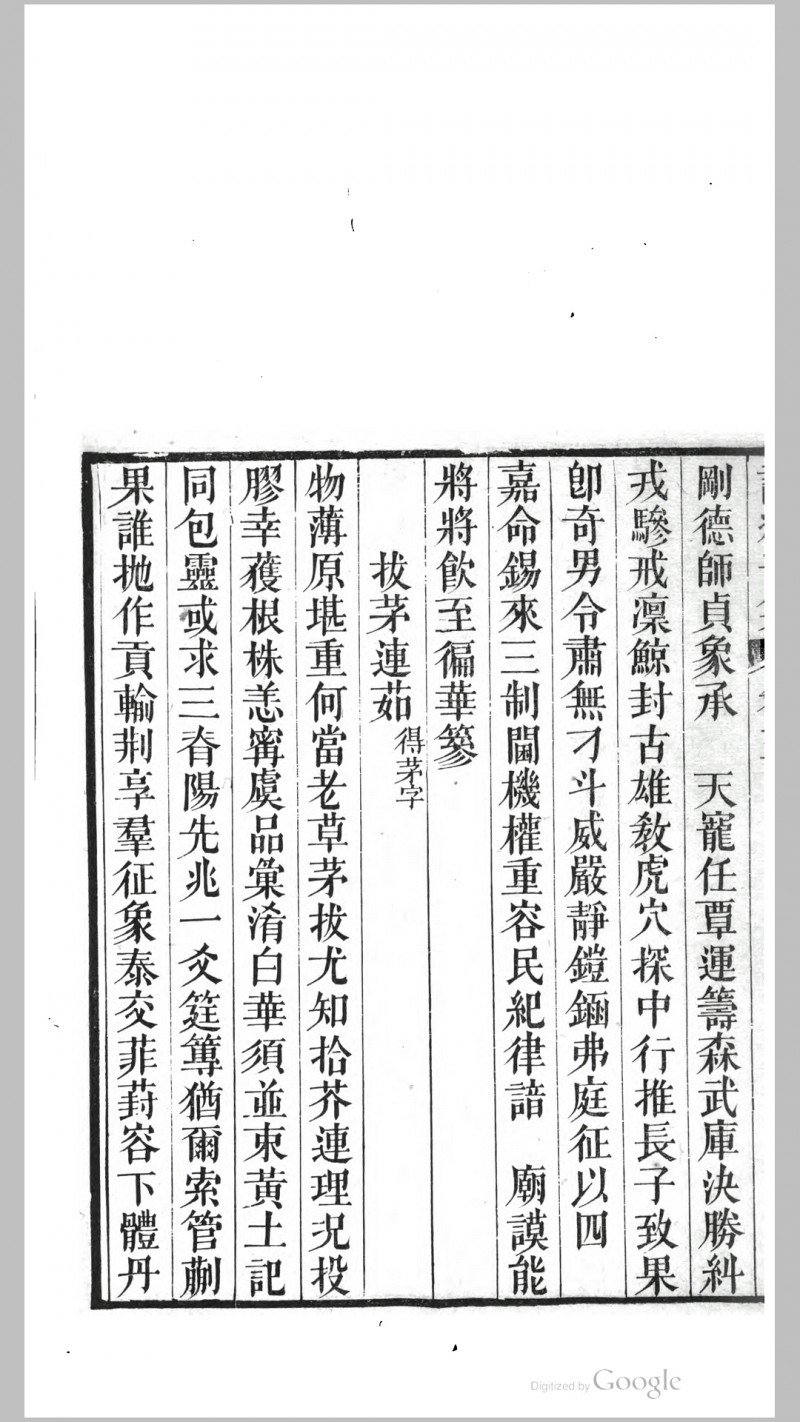 剛德師貞象承　天寵任覃運籌森武庫決勝糾
戎驂戒凜鯨封古雄敎虎穴探中行推長子致果
卽奇男令肅無刁斗威嚴靜鎧鍤弗庭征以四
嘉命錫來三制閫機權重容民紀律諳　廟謨能
將將飮至徧華簪
拔茅連茹得茅字
物薄原堪重何當老草茅拔尤知拾芥連理況投
膠幸獲根株恙寗虞品彙淆白華須並束黃土記
同包靈或求三脊陽先兆一爻筳篿猶爾索管蒯
果誰拋作貢輸荆享羣征象泰交菲葑容下體丹
Digitized by Google